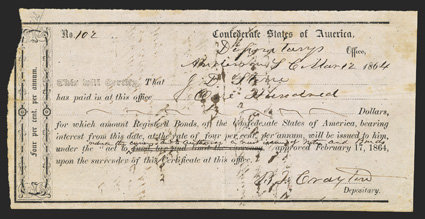 Four per cent. per annum.
No. 102
Confederate States of America.
Office,
Mar 12, 1864
This will Certify, That J. D.
has paid in at this office One Hundred
Dollars,
for which amount Registered Bonds, of the Confederate States of America, bearing
interest from this date, at the rate of four per cent. per annum, will be issued to him,
under the "act to approved February 17, 1864,
upon the surrender of this Certificate at this office.
B. F. Crayton
Depositary.